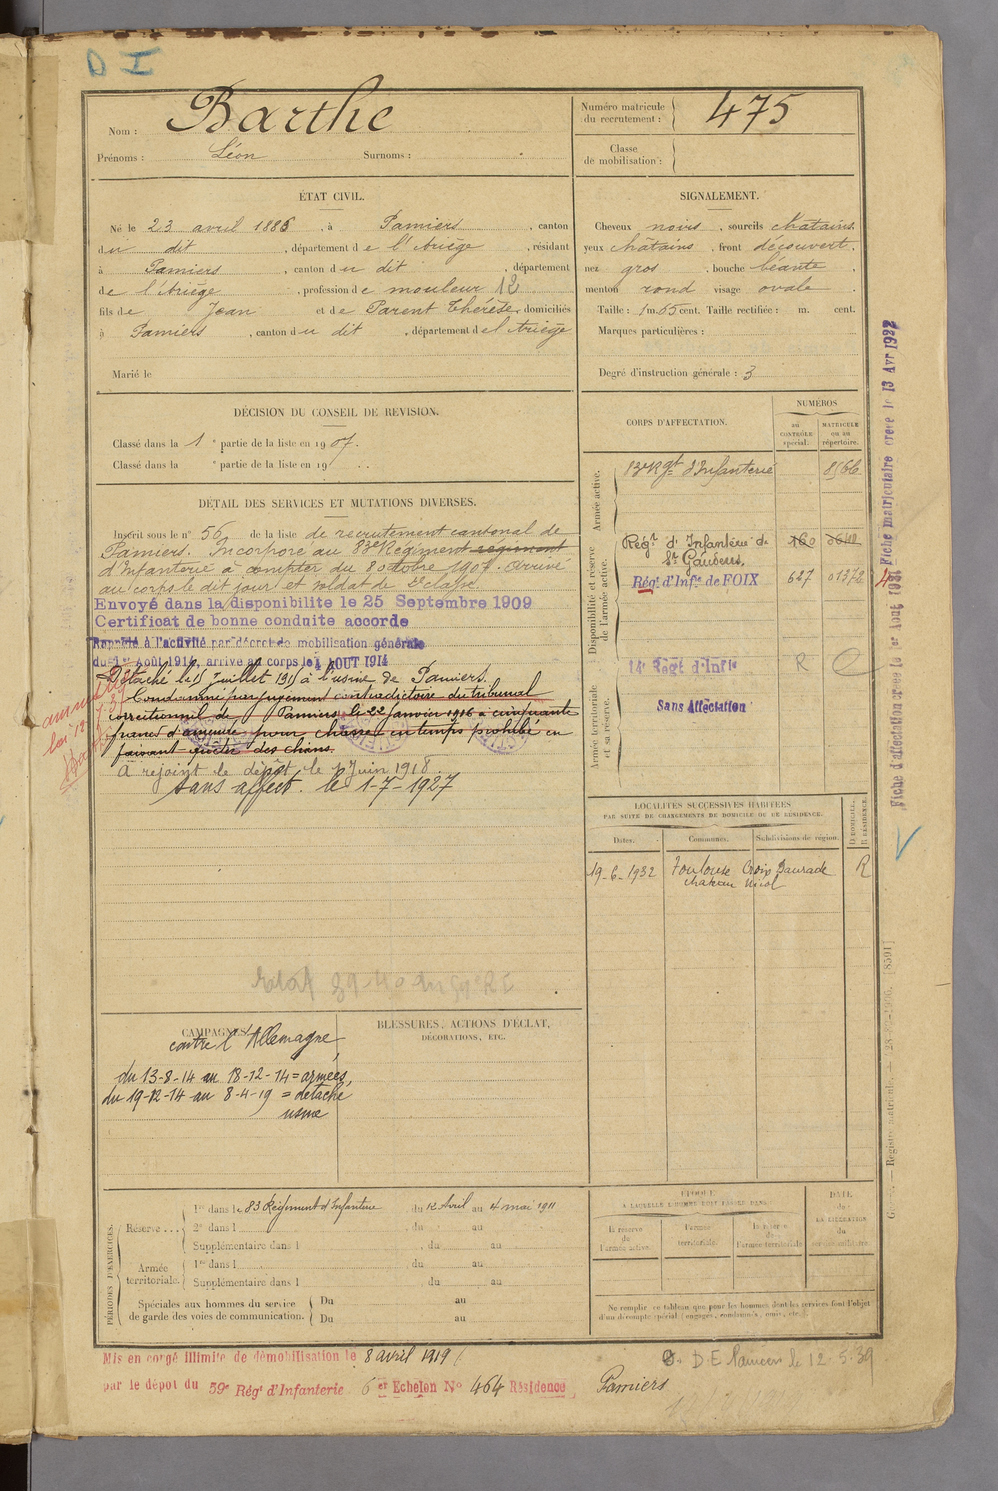 D I
Nom : Barthe
Prénoms : Léon Surnoms :
Numéro matricule
du recrutement : 475
Classe
de mobilisation :
ÉTAT CIVIL.
Né le 23 avril 1886, à Pamiers, canton
du dit, département de l'Ariège, résidant
à Pamiers, canton du dit, département
de l'Ariège, profession de mouleur 12
fils de Jean et de Parent Thérèse, domiciliés
à Pamiers, canton du dit, département de l'Ariège
Marié le
SIGNALEMENT.
Cheveux noirs, sourcils châtains.
yeux châtains, front découvert.
nez gros, bouche béante.
menton rond visage ovale
Taille : 1 m. 65 cent. Taille rectifiée : m. cent.
Marques particulières :
Degré d'instruction générale : 3
DÉCISION DU CONSEIL DE REVISION.
Classé dans la 1e partie de la liste en 1907.
Classé dans la e partie de la liste en 19
DÉTAIL DES SERVICES ET MUTATIONS DIVERSES.
Inscrit sous le n° 56 de la liste de recrutement cantonal de
Pamiers. Incorporé au 83e Régiment régiment
d'Infanterie à compter du 8 octobre 1907. Arrivé
au corps le dit jour et soldat de 2e classe
Envoyé dans la disponibilité le 25 Septembre 1909
Certificat de bonne conduite accordé
Rappelé à l'activité par décret de mobilisation générale
du 1er Août 1914, arrivé au corps le 4 AOUT 1914
Détaché le Juillet 1915 à l'usine de Pamiers.
Condamné par jugement contradictoire du tribunal
correctionnel de Pamiers le 22 Janvier 1916 à cinquante
francs d'amende pour chasse en temps prohibé en
faisant quête des chiens.
A rejoint le dépôt le 1 Juin 1918
sans affect. le 1-7-1927
CORPS D'AFFECTATION.
NUMÉROS
au
CONTRÔLE
spécial.
MATRICULE
ou au
répertoire.
Armée active.
83e Rgt d'Infanterie 8566
Disponibilité et réserve
de l'armée active.
Régt d'Infanterie de 160
St Gaudens,
Régt d'Infie de FOIX 627 01372
Armée territoriale
et sa réserve.
14e Régt d'Infie R
Sans Affectation
Fiche matriculaire créée le 13 Avr 1922
Fiche d'affectation créée le 1er Août
LOCALITÉS SUCCESSIVES HABITÉES
PAR SUITE DE CHANGEMENTS DE DOMICILE OU DE RÉSIDENCE.
Dates. Communes. Subdivisions de région. D. DOMICILE. R. RÉSIDENCE.
19-6-1932 Toulouse Croix Daurade R
chateau Nicol
CAMPAGNES
contre l'Allemagne
du 13-8-14 au 18-12-14 = armées
du 19-12-14 au 8-4-19 = détaché
usine
BLESSURES, ACTIONS D'ÉCLAT,
DÉCORATIONS, ETC.
PÉRIODES D'EXERCICES.
Réserve
1re dans le 83 Régiment d'Infanterie du 12 Avril au 4 mai 1911
2e dans l du au
Supplémentaire dans l du au
Armée
territoriale.
1re dans l du au
Supplémentaire dans l du au
Spéciales aux hommes du service
de garde des voies de communication.
Du au
Du au
ÉPOQUE
À LAQUELLE L'HOMME DOIT PASSER DANS
la réserve
de
l'armée active.
l'armée
territoriale.
la réserve
de
l'armée territoriale
DATE
de
LA LIBÉRATION
du
service militaire.
Ne remplir ce tableau que pour les hommes dont les services font l'objet
d'un décompte spécial (engagés, condamnés, omis, etc.)
Mis en congé illimité de démobilisation le 8 avril 1919
par le dépôt du 59e Régt d'Infanterie 6 er Echelon No 464 Résidence Pamiers
D.E Pamiers le 12.5.39